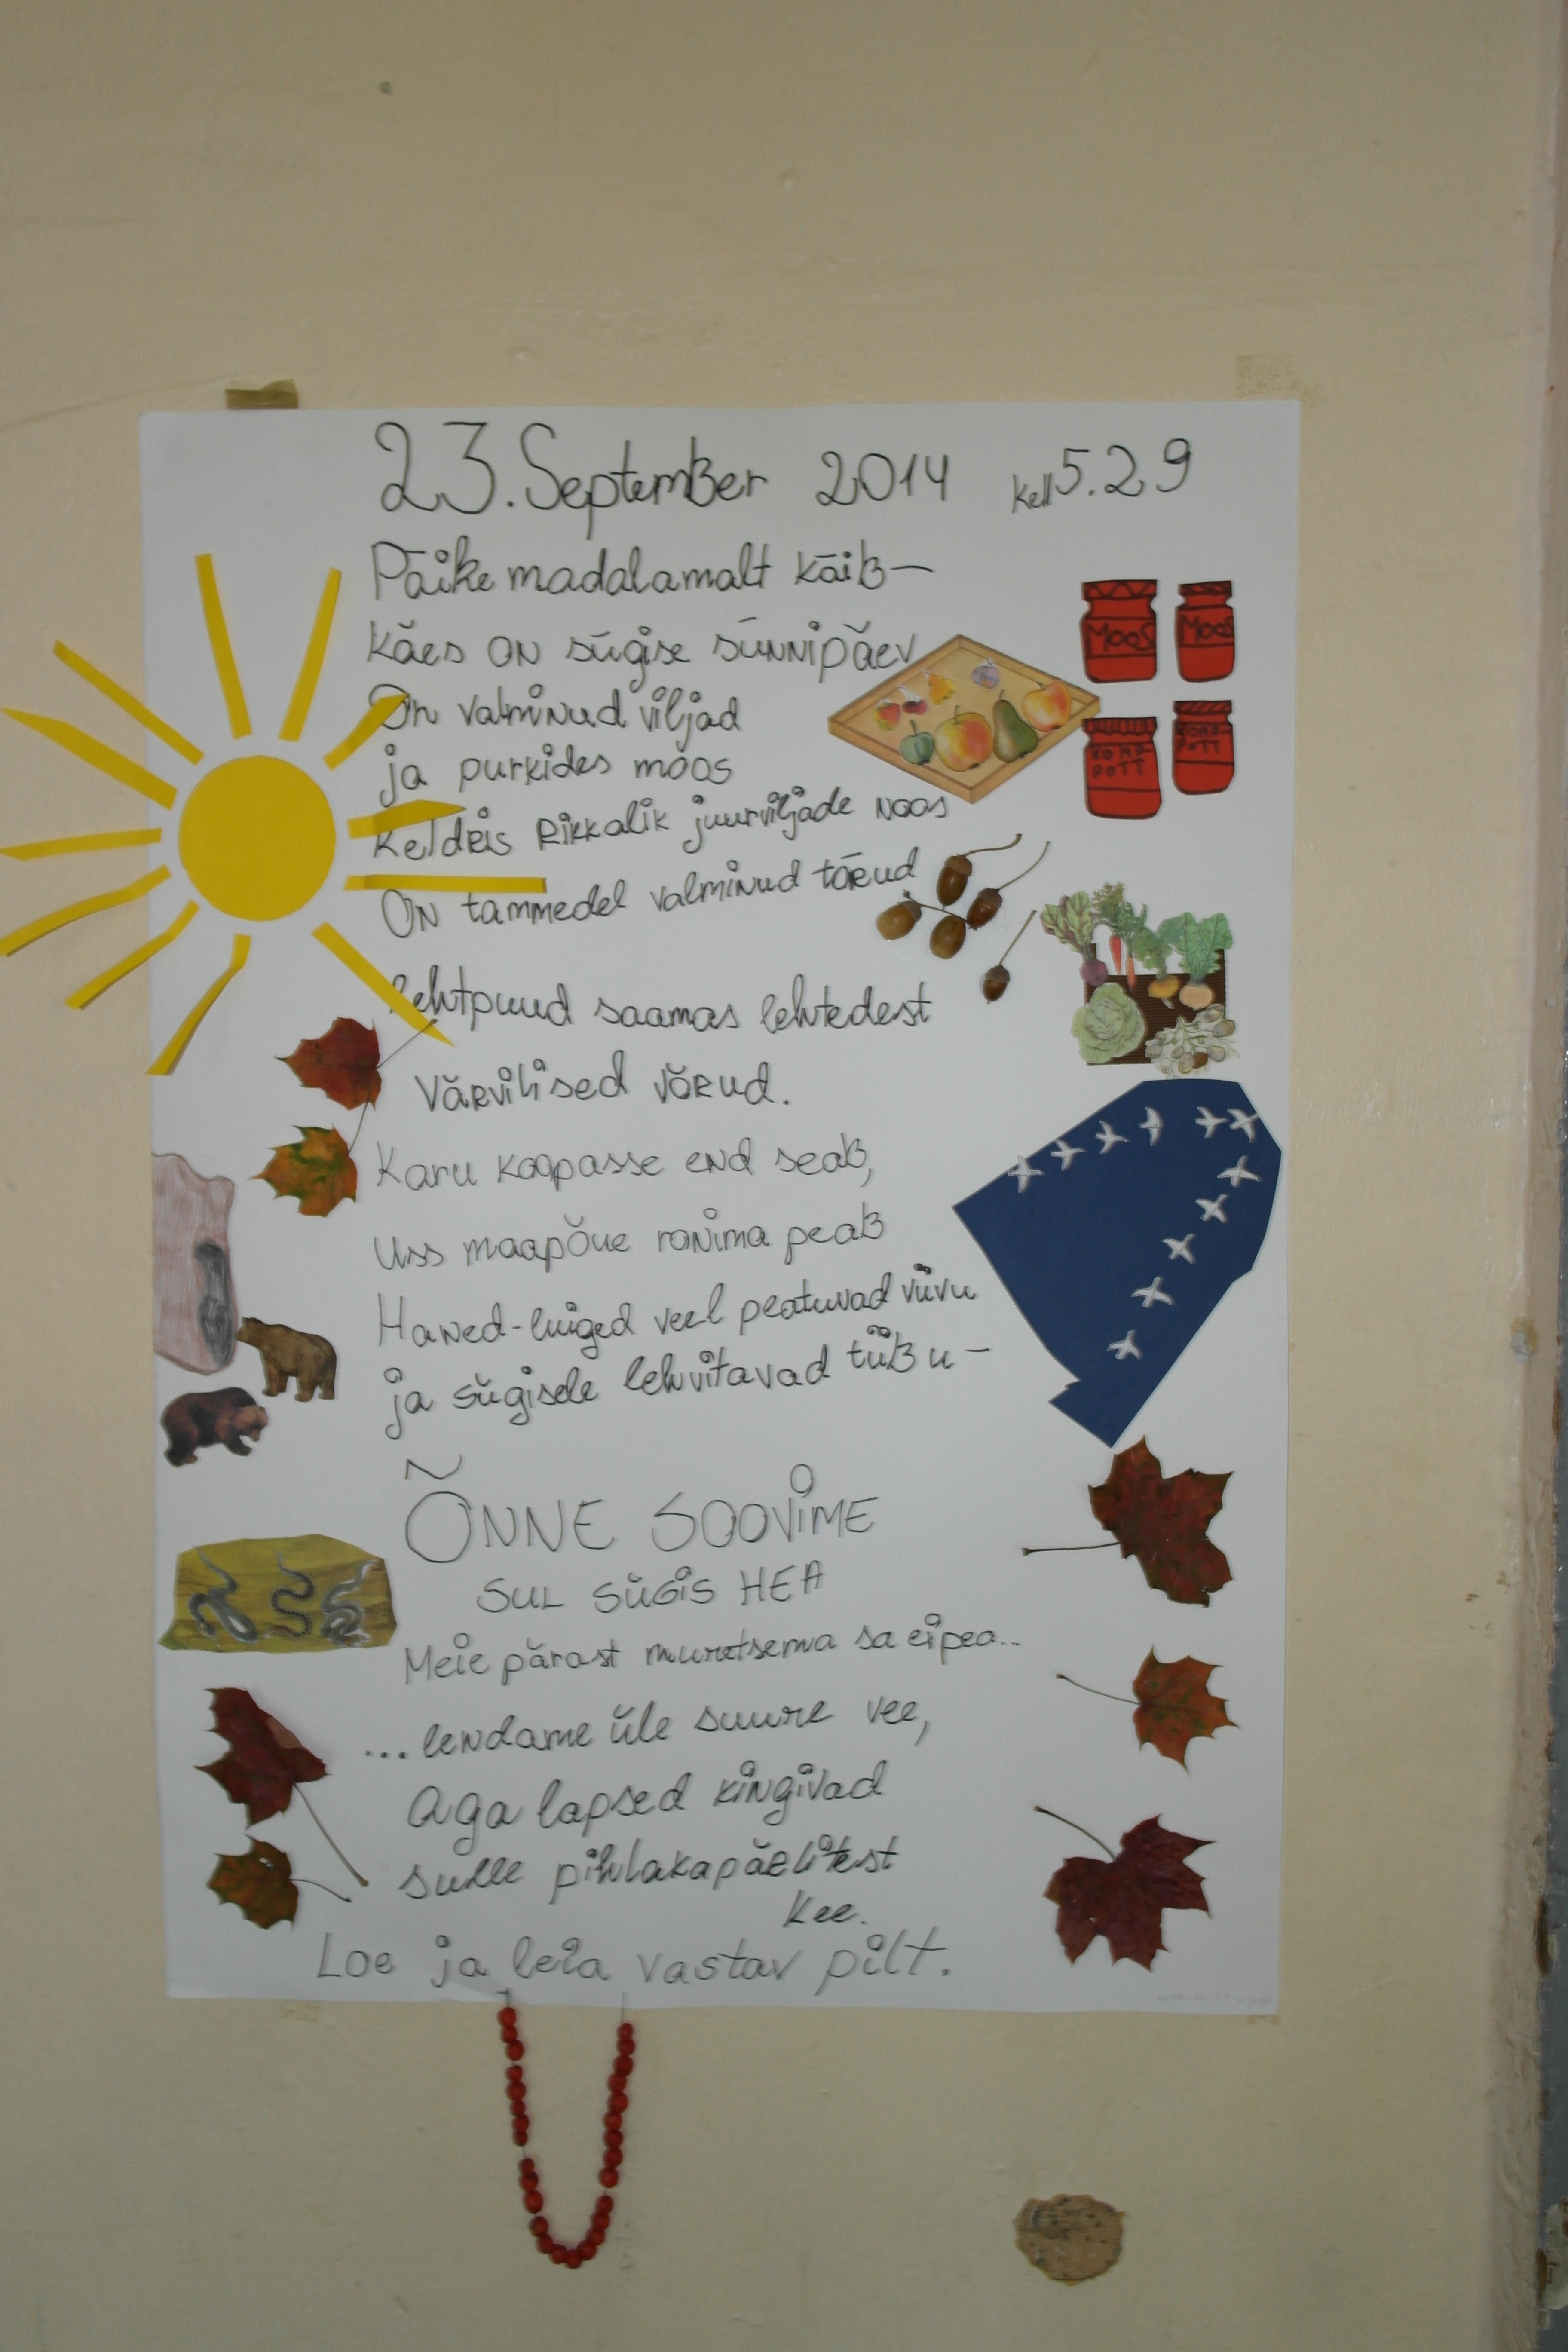 23. September 2014 kell 5.29
Päike madalamalt käib—
käes on sügise sünnipäev
On valminud viljad
ja purkides moos
MOOS MOOS
KOMPOTT
KOMPOTT
Keldris rikkalik juurviljade noos
On tammedel valminud tõrud
lehtpuud saamas lehtedest
värvilised võrud.
Karu koopasse end seab,
Uss maapõue ronima peab
Haned-luiged veel peatuvad viivu
ja sügisele lehvitavad tiibu –
ÕNNE SOOVIME
SUL SÜGIS HEA
Meie pärast muretsema sa ei pea..
...lendame üle suure vee,
Aga lapsed kingivad
sulle pihlakapärlitest
kee.
Loe ja leia vastav pilt.